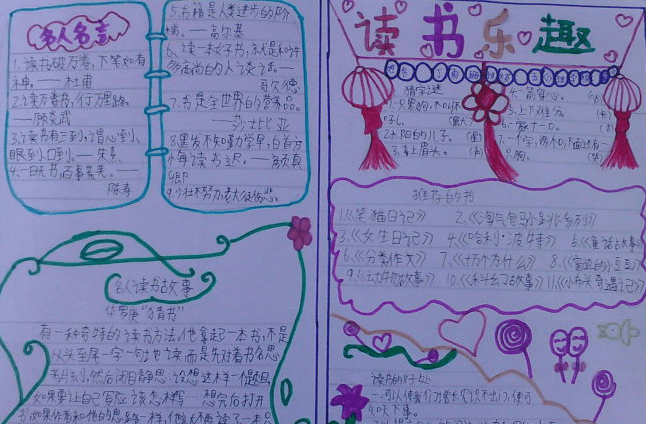 名人名言
1.读书破万卷,下笔如有
神。——杜甫
2.读万卷书,行万里路。
——顾炎武
3.读书有三到,谓心到、
眼到、口到。——朱熹
4.一日无书,百事荒芜。——
陈寿
5.书籍是人类进步的阶
梯。——高尔基
6.读一本好书,就是和许
多高尚的人谈话。——
歌德
7.书是全世界的营养品。
——莎士比亚
8.黑发不知勤学早,白首方
悔读书迟。——颜真
卿
9.少壮不努力,老大徒伤悲。
名人读书故事
华罗庚“猜书”
有一种奇特的读书方法,他拿起一本书,不是
从头至尾一字一句地读,而是先对着书名思
考然后闭目静思,设想这样一个题目
如果要让自己写应该怎样写 想完后打开
读书乐趣
猜字谜
1.一只黑狗,不叫不
吼。
2.太阳的儿子。
3.春上眉头。
4.一箭穿心。
5.上下难分。
6.一家十一口。
推荐的书
1.《笑猫日记》 2.《淘气包马小跳系列》
3.《女生日记》 4.《哈利·波特》 5.《童话故事》
6.《分类作文》 7.《十万个为什么》 8.《窗边的小豆豆》
9.《故事》 10.《科幻故事》 11.《小布头奇遇记》
读书的好处
一.可以使我们增长见识,不出门,便可
知天下事。